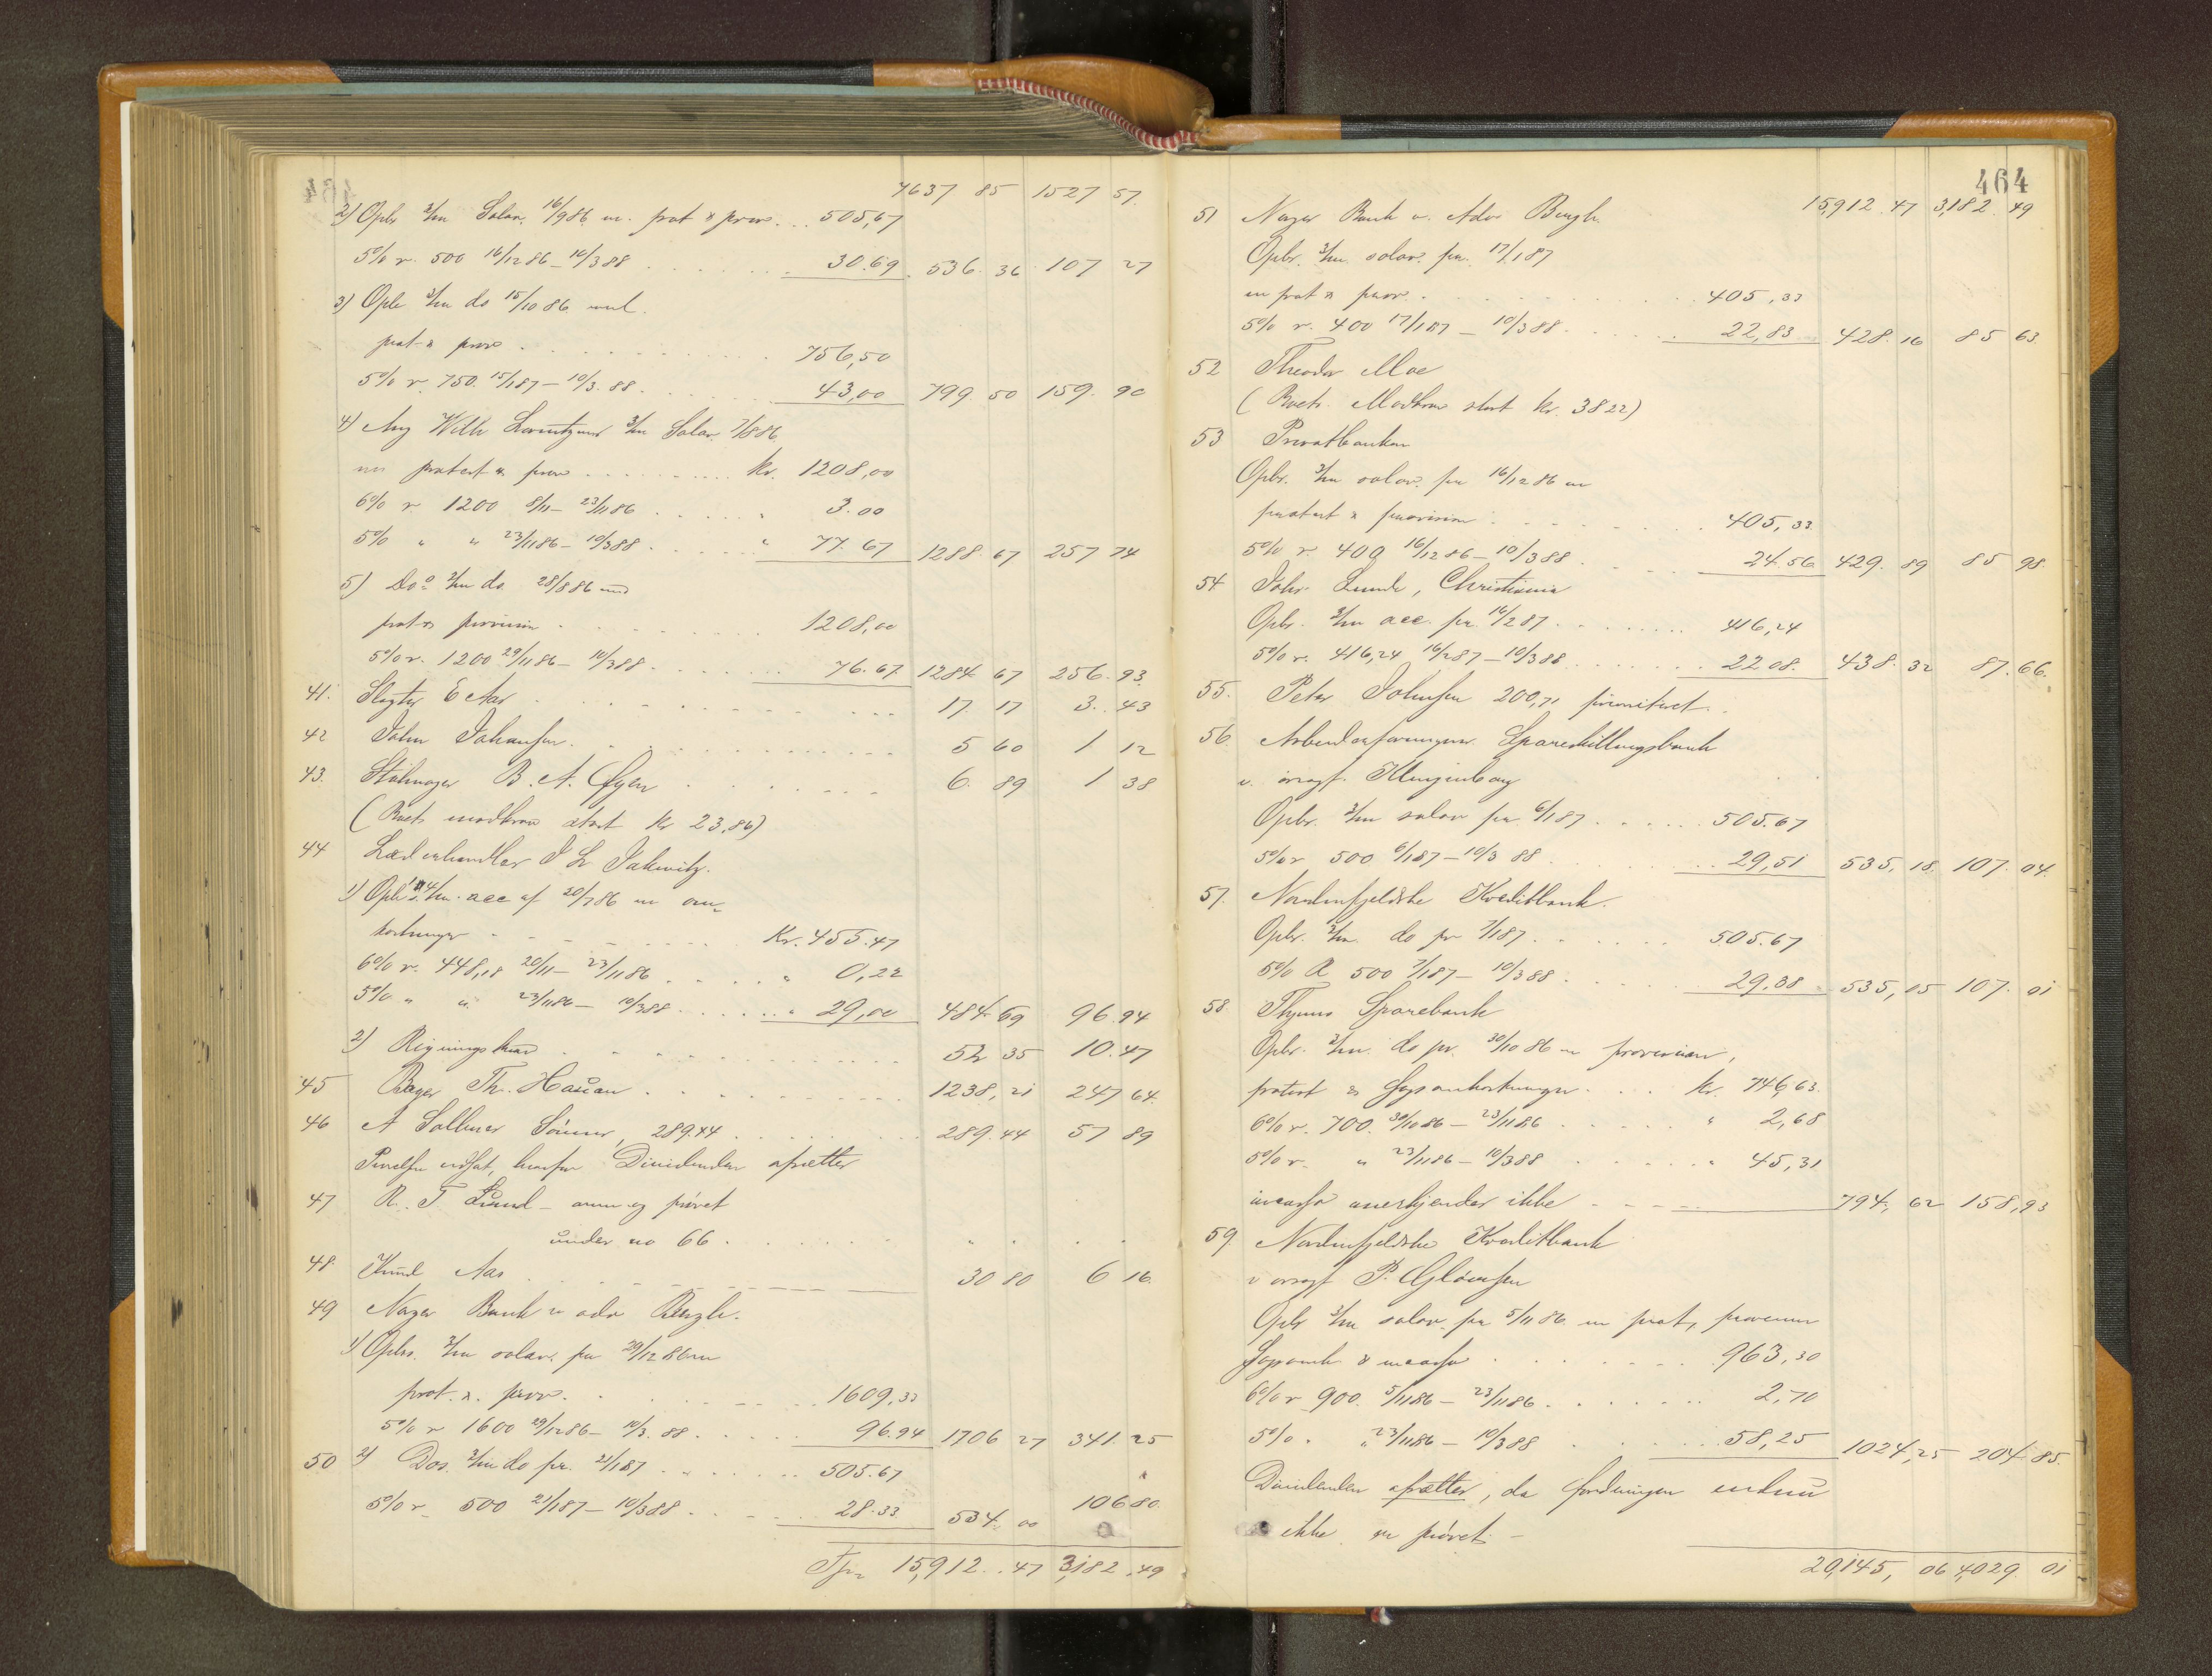 7637 85 1527 57.
2) Opbr 3/m Solav. 16/9 86 m. prot & prov. . . 505,67
5% r. 500 16/12 86 – 10/3 88 . . . . . . 30.69 536. 36 107 27
3) Opbr 3/m do 15/10 86 med.
prot & prov . . . . . . . . . . 756,50
5% r. 750. 15/1 87 – 10/3. 88 . . . . . 43,00 799 50 159. 90
4) Aug Wilh Lorentzens 3/m Solav. 7/8 86
m protest & prov . . . . . . . . kr. 1208,00
6% r 1200 8/11 – 23/11 86 . . . . . " 3.00
5% " " 23/11 86 – 10/3 88 . . . . . " 77.67 1288.67 257 74
5) Doo 3/m do. 28/8 86 med
prot & provision . . . . . . . . . 1208,00
5% r. 1200 29/11 86 – 10/3 88 . . . . . . 76.67. 1284 67 256.93.
41. Slagter E Aas . . . . . . . . . . 17. 17 3. 43
42 John Johansen. . . . . . . . . . 5 60 1 12
43. B. A. Øyen . . . . . . . 6. 89 1 38
(Boets modkrav stort kr 23,86)
44 Læderhandler I L Jakwitz.
1) Opbr's 4/m. acc af 20/7 86 m om-
kostninger . . . . . . . . Kr. 455.47
6% r. 448,18 20/11 – 23/11 86 . . . . . " 0,22
5% " " 23/11 86 – 10/3 88 . . . . . . " 29,00 484 69 96.94
2) Regningskrav . . . . . . . . . . 52 35 10.47
45 Bager Th. Hauan . . . . . . . . . . 1238,21 247 64.
46 A Sellmer Sönner, 289.44 . . . . . . . . 289.44 57 89
udsat, hvorfor Dividenden afsættes
47 R. F. Lund – anm og prøvet
under no 66 . . . . . . . .
48. Knud Aas . . . . . . . . . . 30 80 6 16.
49 Norges Bank v adv Benzli.
1) Opbr. 3/m solav. pr 29/12 86 m
prot. & prov. . . . . . . . . . 1609,33
5% r 1600 29/12 86 – 10/3. 88 . . . . . . 96.94 1706 27 341.25
50 2) Dos. 3/m do pr. 21/1 87 . . . . . . . 505.67
5% r 500 21/1 87 – 10/3 88 . . . . . . 28.33 534. 00 106 80.
Tspr 15,912. .47 3,182 .49
464
15,912 .47 3,182. 49
51 Norges Bank v. Adv Benzli
Opbr. 3/m. solav. pr. 17/1 87
m prot & prov. . . . . . . . . . . 405,33
5% r. 400 17/1 87 – 10/3 88 . . . . . . 22,83 428.16 85 63.
52 Theodor Moe
(Boets. Modkrav stort kr. 3822)
53 Privatbanken
Opbr. 3/m solav. pr 16/12 86 m
protest & provision . . . . . . . . 405,33
5% r. 400 16/12 86 – 10/3 88 . . . . . 24.56 429. 89 85 98.
54 Johs. Lunde, Christiania
Opbr. 3/m acc. pr. 16/2 87 . . . . . . . 416,24
5% r. 416,24 16/2 87 – 10/3 88 . . . . . . . 22 08. 438. 32 87.66.
55. Peter Johnsen 200,71 prioriteret.
56. Arbeiderforeningens Spareskillingsbank
v. orsagf. Klingenberg
Opbr. 3/m solav pr 6/1 87 . . . . . . 505.67
5% r 500 6/1 87 – 10/3 88 . . . . . . 29,51 535,18. 107. 04.
57. Nordenfjeldske Kreditbank.
Opbr. 3/m. do pr 7/1 87 . . . . . . 505.67
5% R 500 7/1 87 – 10/3 88 . . . . . . 29.38 535,05 107. 01
58. Sparebank
Opbr. 3/m. do pr. 30/10 86 m provision,
protest & Sagsomkostninger . . . kr. 746,63.
6% r. 700. 30/10 86 – 23/11 86 . . . . . . " 2,68
5% r. " 23/11 86 – 10/3 88 . . . . . . " 45,31
incasso anerkjendes ikke . . . . 794, 62 158,93
59 Nordenfjeldske Kreditbank
v orsagf P.
Opbr 3/m solav. pr 5/11 86 m prot, provision
Sagsomk & incasso . . . . . . . . 963,30
6% r 900. 5/11 86 – 23/11 86 . . . . . . . 2,70
5% . " 23/11 86 – 10/3 88 . . . . . 58,25 1024,25 204.85.
Dividenden afsættes, da fordringen endnu
ikke er prøvet –
20,145, 06 4,029. 01